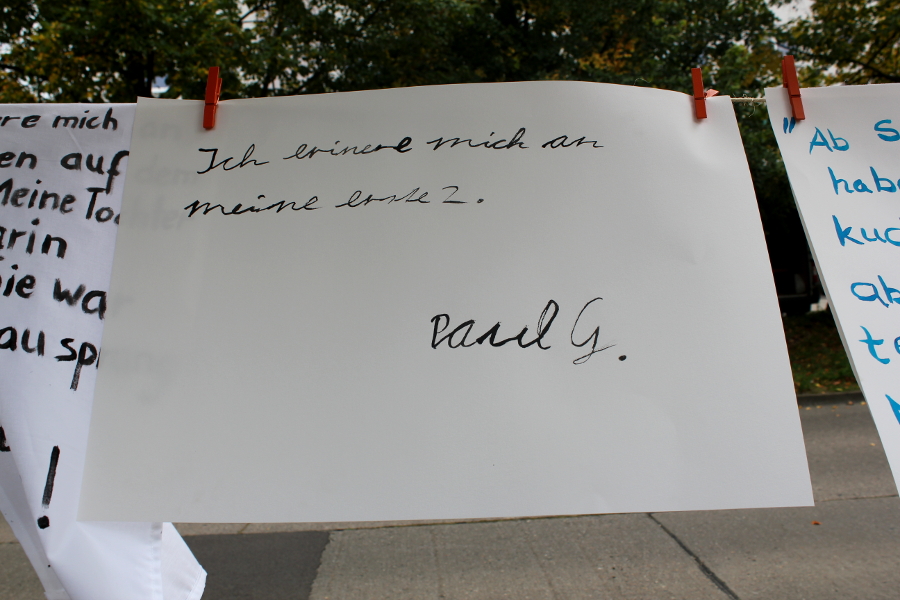 re mich
en auf
Meine Toc
arin
Sie wa
au sp
!
Ich erinere mich an
meine erste 2.
Pavel G.
"Ab s
habe
kuc
ab
te